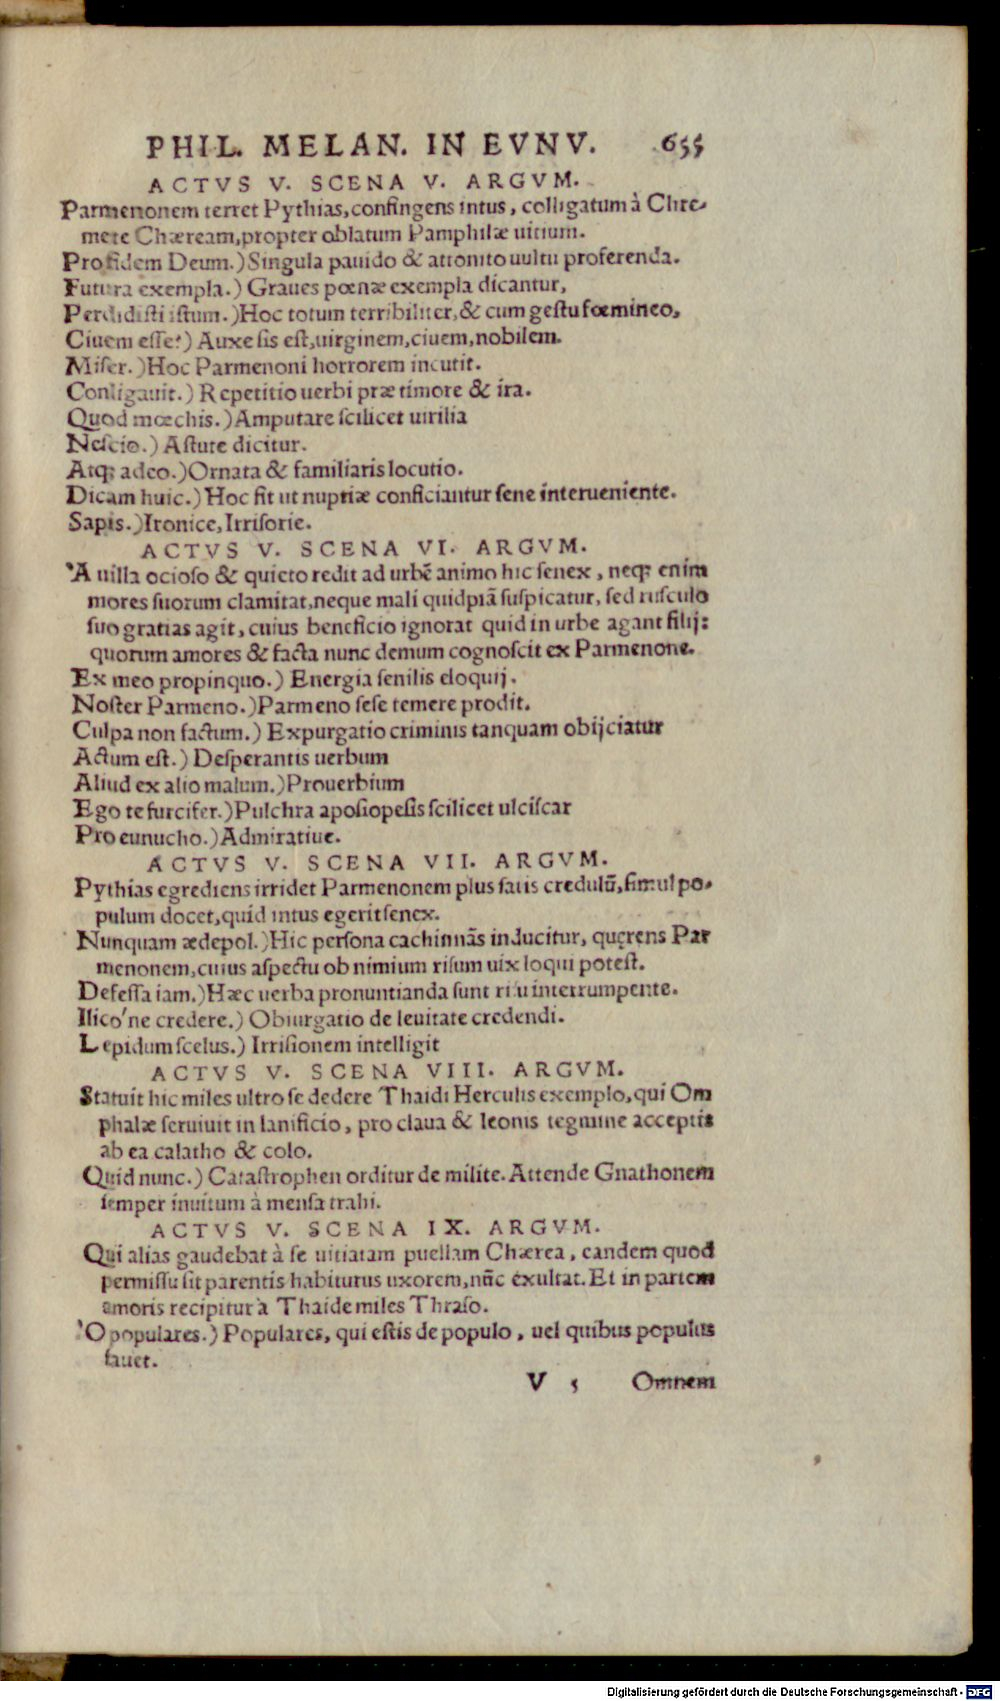 PHIL. MELAN. IN EVNV. 655
ACTVS V. SCENA V. ARGVM.
Parmenonem terret Pythias, confingens intus, colligatum à Chre-
mete Chæream, propter oblatum Pamphilæ uitium.
Pro fidem Deum.) Singula pauido & attonito uultu proferenda.
Futura exempla.) Graues pœnæ exempla dicantur,
Perdidisti istum.) Hoc totum terribiliter, & cum gestu fœmineo,
Ciuem esse?) Auxesis est, uirginem, ciuem, nobilem.
Miser.) Hoc Parmenoni horrorem incutit.
Conligauit.) Repetitio uerbi præ timore & ira.
Quod mœchis.) Amputare scilicet uirilia
Nescio.) Astute dicitur.
Atq; adeo.) Ornata & familiaris locutio.
Dicam huic.) Hoc fit ut nuptiæ conficiantur sene interueniente.
Sapis.) Ironice, Irrisorie.
ACTVS V. SCENA VI. ARGVM.
'A uilla ocioso & quieto redit ad urbē animo hic senex, neq; enim
mores suorum clamitat, neque mali quidpiā suspicatur, sed rusculo
suo gratias agit, cuius beneficio ignorat quid in urbe agant filij:
quorum amores & facta nunc demum cognoscit ex Parmenone.
Ex meo propinquo.) Energia senilis eloquij.
Noster Parmeno.) Parmeno sese temere prodit.
Culpa non factum.) Expurgatio criminis tanquam obijciatur
Actum est.) Desperantis uerbum
Aliud ex alio malum.) Prouerbium
Ego te furcifer.) Pulchra aposiopesis scilicet ulciscar
Pro eunucho.) Admiratiue.
ACTVS V. SCENA VII. ARGVM.
Pythias egrediens irridet Parmenonem plus satis credulū, simul po-
pulum docet, quid intus egerit senex.
Nunquam ædepol.) Hic persona cachinnās inducitur, quęrens Par
menonem, cuius aspectu ob nimium risum uix loqui potest.
Defessa iam.) Hæc uerba pronuntianda sunt risu interrumpente.
Ilico'ne credere.) Obiurgatio de leuitate credendi.
Lepidum scelus.) Irrisionem intelligit
ACTVS V. SCENA VIII. ARGVM.
Statuit hic miles ultro se dedere Thaidi Herculis exemplo, qui Om
phalæ seruiuit in lanificio, pro claua & leonis tegmine acceptis
ab ea calatho & colo.
Quid nunc.) Catastrophen orditur de milite. Attende Gnathonem
semper inuitum à mensa trahi.
ACTVS V. SCENA IX. ARGVM.
Qui alias gaudebat à se uitiatam puellam Chærea, eandem quod
permissu sit parentis habiturus uxorem, nūc exultat. Et in partem
amoris recipitur à Thaide miles Thraso.
'O populares.) Populares, qui estis de populo, uel quibus populus
fauet.
V 5 Omnem
Digitalisierung gefördert durch die Deutsche Forschungsgemeinschaft - DFG